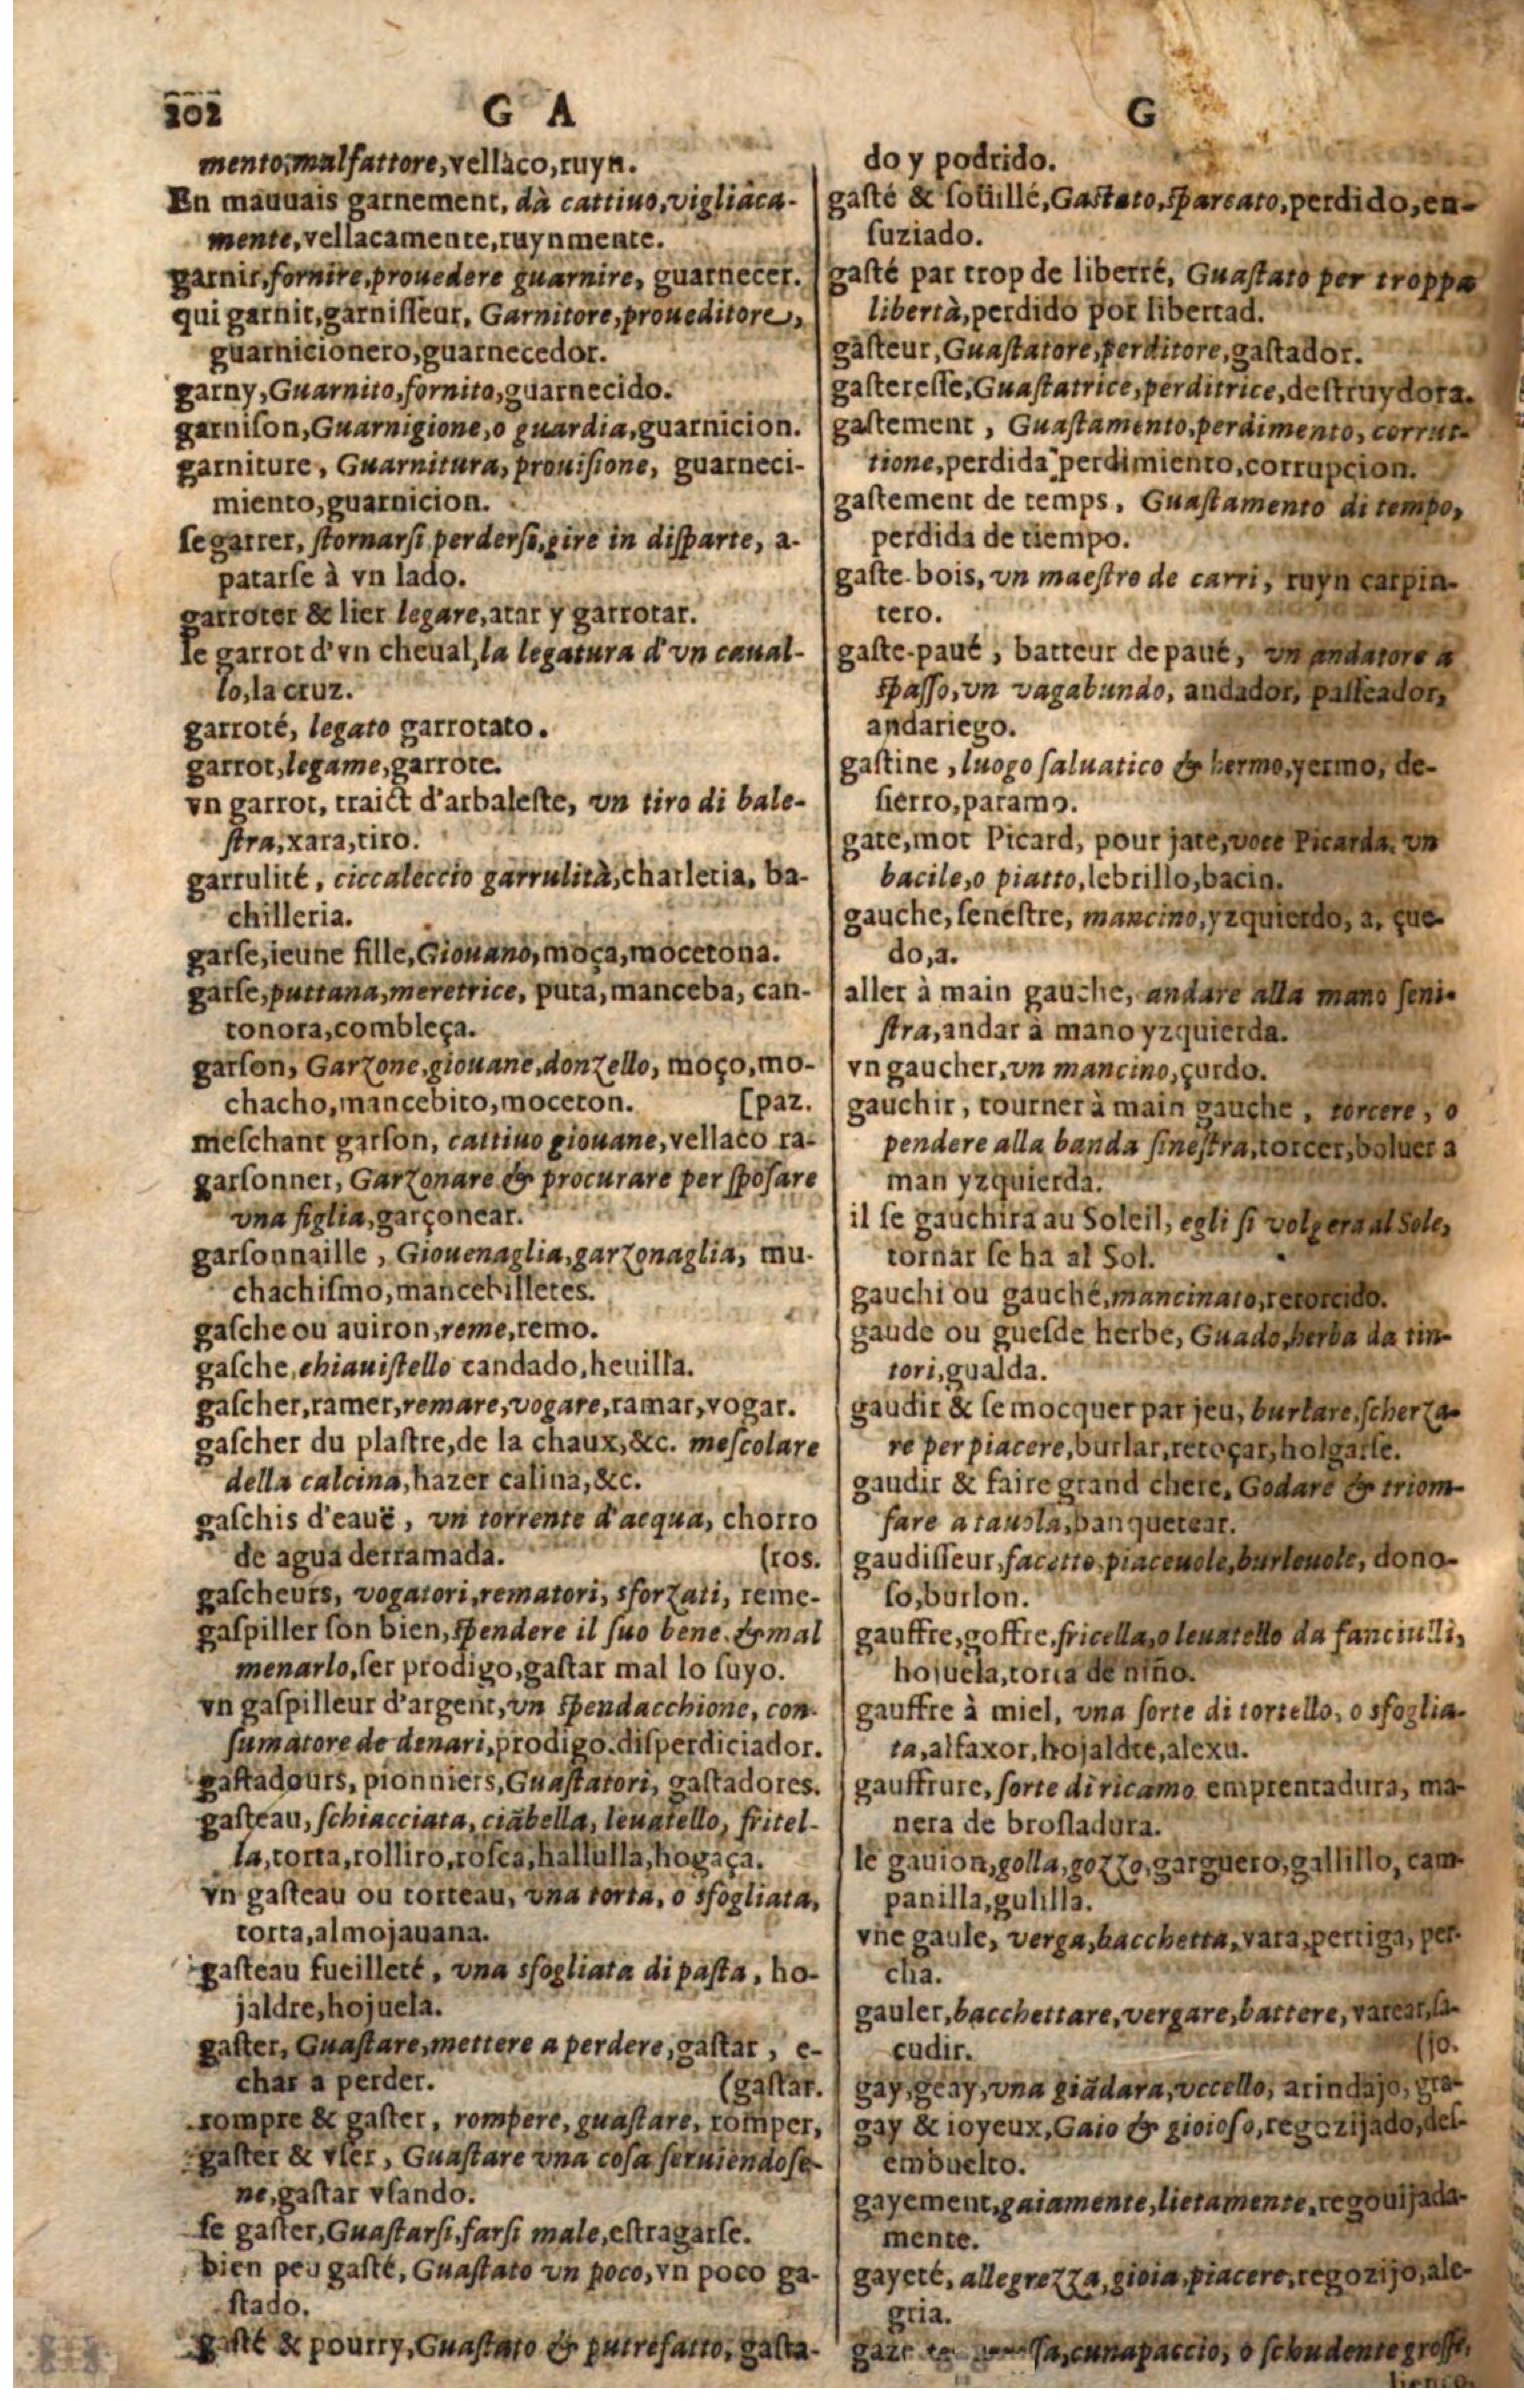 202 G A
mento, malfattore, vellaco, ruyn.
En mauuais garnement, dà cattiuo, vigliaca-
mente, vellacamente, ruynmente.
garnir, fornire, prouedere guarnire, guarnecer.
qui garnit, garnisseur, Garnitore, proueditore,
guarnicionero, guarnecedor.
garny, Guarnito, fornito, guarnecido.
garnison, Guarnigione, o guardia, guarnicion.
garniture, Guarnitura, prouisione, guarneci-
miento, guarnicion.
se garrer, stornarsi perdersi, gire in disparte, a-
patarse à vn lado.
garroter & lier legare, atar y garrotar.
le garrot d'vn cheual, la legatura d'vn caual-
lo, la cruz.
garroté, legato garrotato.
garrot, legame, garrote.
vn garrot, traict d'arbaleste, vn tiro di bale-
stra, xara, tiro.
garrulité, ciccaleccio garrulità, charleria, ba-
chilleria.
garse, ieune fille, Giouano, moça, mocetona.
garse, puttana, meretrice, puta, manceba, can-
tonora, combleça.
garson, Garzone, giouane, donzello, moço, mo-
chacho, mancebito, moceton. [paz.
meschant garson, cattiuo giouane, vellaco ra-
garsonner, Garzonare & procurare per sposare
vna figlia, garçonear.
garsonnaille, Giouenaglia, garzonaglia, mu-
chachismo, mancebilletes.
gasche ou auiron, reme, remo.
gasche, chiauistello candado, heuilla.
gascher, ramer, remare, vogare, ramar, vogar.
gascher du plastre, de la chaux, &c. mescolare
della calcina, hazer calina, &c.
gaschis d'eauë, vn torrente d'acqua, chorro
de agua derramada. (ros.
gascheurs, vogatori, rematori, sforzati, reme-
gaspiller son bien, spendere il suo bene, & mal
menarlo, ser prodigo, gastar mal lo suyo.
vn gaspilleur d'argent, vn spendacchione, con-
sumatore de denari, prodigo. disperdiciador.
gastadours, pionniers, Guastatori, gastadores.
gasteau, schiacciata, ciãbella, leuatello, fritel-
la, torta, rolliro, rosca, hallulla, hogaça.
vn gasteau ou torteau, vna torta, o sfogliata,
torta, almojauana.
gasteau fueilleté, vna sfogliata di pasta, ho-
jaldre, hojuela.
gaster, Guastare, mettere a perdere, gastar, e-
char a perder. (gastar.
rompre & gaster, rompere, guastare, romper,
gaster & vser, Guastare vna cosa seruiendose-
ne, gastar vsando.
se gaster, Guastarsi, farsi male, estragarse.
bien peu gasté, Guastato vn poco, vn poco ga-
stado.
gasté & pourry, Guastato & putrefatto, gasta-
G
do y podrido.
gasté & soüillé, Gastato, sparcato, perdido, en-
suziado.
gasté par trop de liberté, Guastato per troppa
libertà, perdido por libertad.
gasteur, Guastatore, perditore, gastador.
gasteresse, Guastatrice, perditrice, destruydora.
gastement, Guastamento, perdimento, corrut-
tione, perdida, perdimiento, corrupçion.
gastement de temps, Guastamento di tempo,
perdida de tiempo.
gaste-bois, vn maestro de carri, ruyn carpin-
tero.
gaste-paué, batteur de paué, vn andatore a
spasso, vn vagabundo, andador, passeador,
andariego.
gastine, luogo saluatico & hermo, yermo, de-
sierro, paramo.
gate, mot Picard, pour jate, voce Picarda, vn
bacile, o piatto, lebrillo, bacin.
gauche, senestre, mancino, yzquierdo, a, çue-
do, a.
aller à main gauche, andare alla mano seni-
stra, andar à mano yzquierda.
vn gaucher, vn mancino, çurdo.
gauchir, tourner à main gauche, torcere, o
pendere alla banda sinestra, torcer, boluer a
man yzquierda.
il se gauchira au Soleil, egli si volgera al Sole,
tornar se ha al Sol.
gauchi ou gauché, mancinato, retorcido.
gaude ou guesde herbe, Guado, herba da tin-
tori, gualda.
gaudir & se mocquer par jeu, burlare, scherza-
re per piacere, burlar, retoçar, holgarse.
gaudir & faire grand chere, Godare & triom-
fare a tauola, banquetear.
gaudisseur, facetto, piaceuole, burleuole, dono-
so, burlon.
gauffre, goffre, fricella, o leuatello da fanciulli,
hojuela, torta de niño.
gauffre à miel, vna sorte di tortello, o sfoglia-
ta, alfaxor, hojaldre, alexu.
gauffrure, sorte di ricamo emprentadura, ma-
nera de brosladura.
le gauion, golla, gozzo, garguero, gallillo, cam-
panilla, gulilla.
vne gaule, verga, bacchetta, vara, pertiga, per-
cha.
gauler, bacchettare, vergare, battere, varear, sa-
cudir. (jo.
gay, geay, vna giãdara, vccello, arindajo, gra-
gay & ioyeux, Gaio & gioioso, regozijado, des-
embuelto.
gayement, gaiamente, lietamente, regouijada-
mente.
gayeté, allegrezza, gioia, piacere, regozijo, ale-
gria.
cunapaccio, o scbudente grosse,